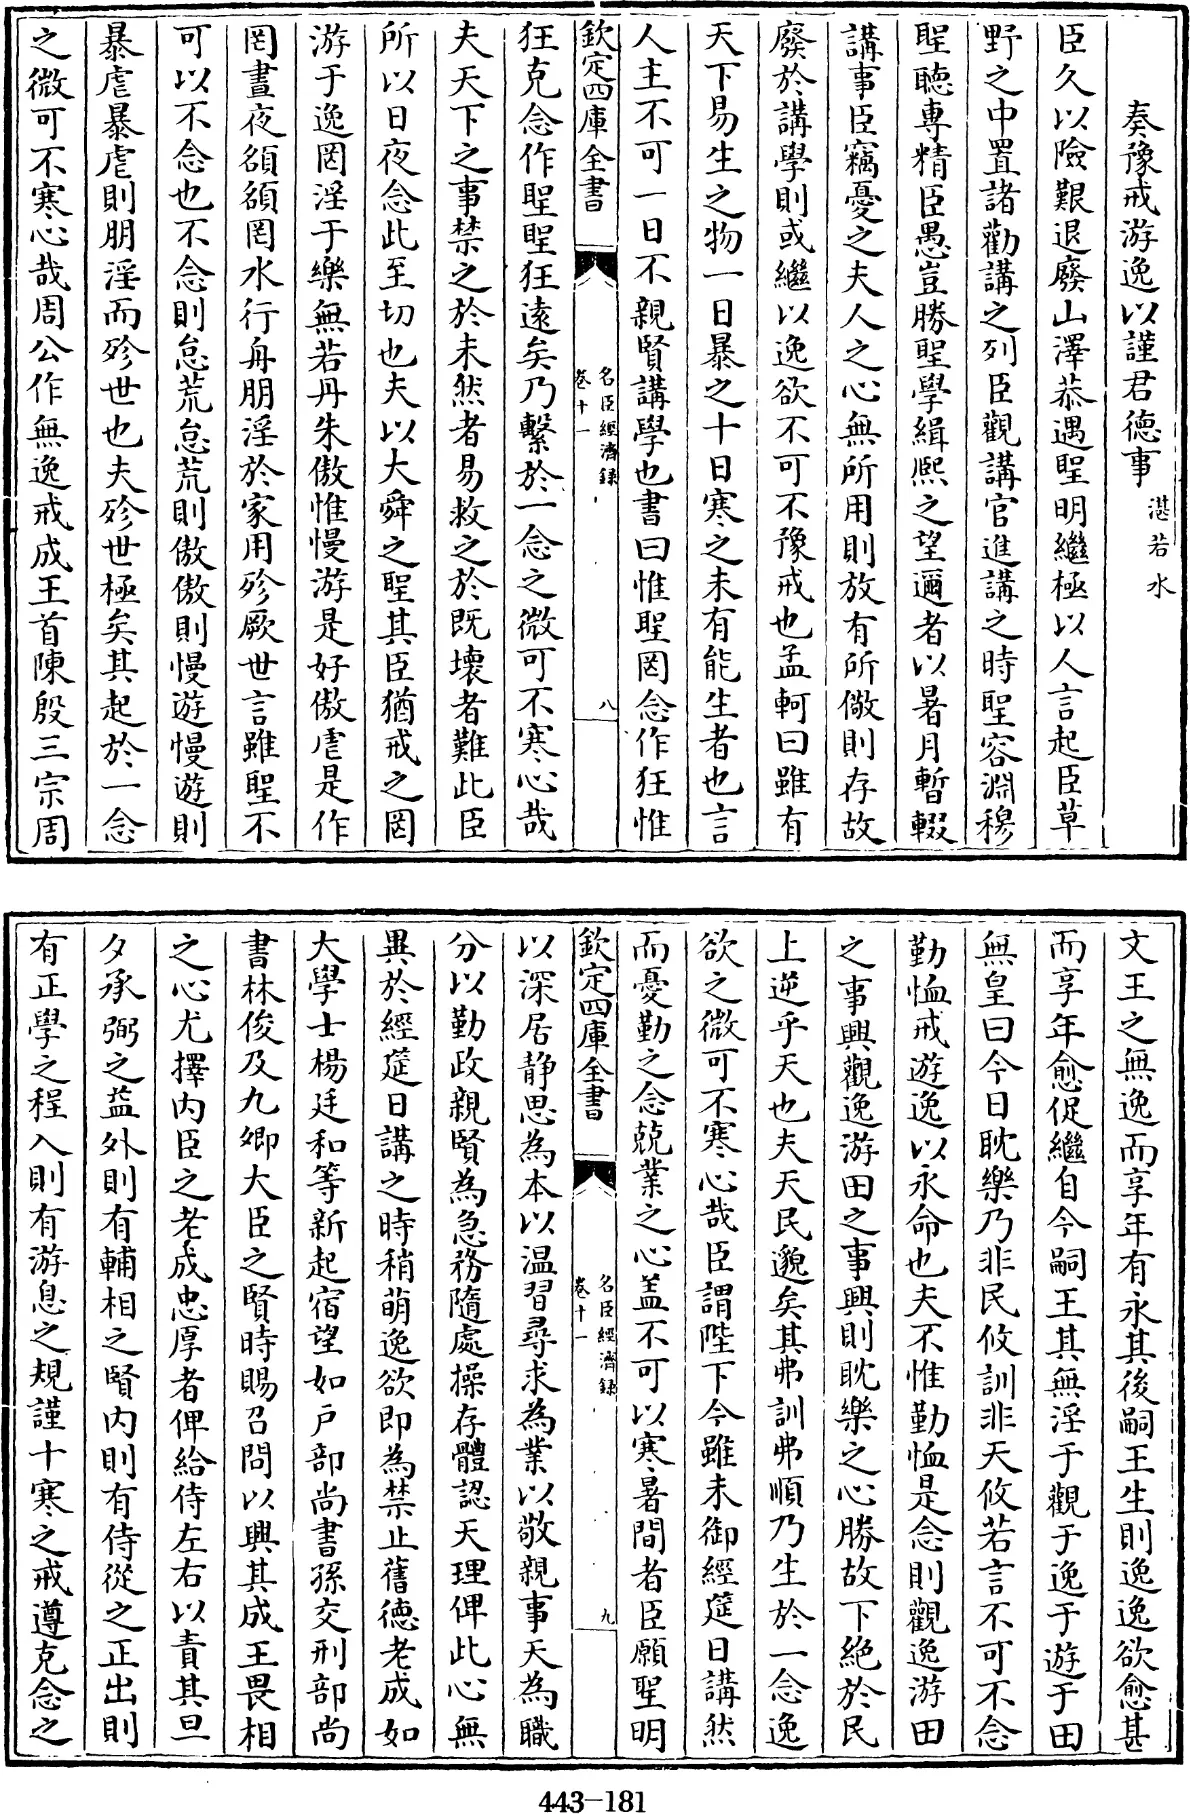 奏豫戒游逸以謹君德事 湛若水
臣久以險艱退廢山澤恭遇聖明繼極以人言起臣草
野之中置諸勸講之列臣觀講官進講之時聖容淵穆
聖聽專精臣愚豈勝聖學緝熙之望邇者以暑月暫輟
講事臣竊憂之夫人之心無所用則放有所儆則存故
廢於講學則或繼以逸欲不可不豫戒也孟軻曰雖有
天下易生之物一日暴之十日寒之未有能生者也言
人主不可一日不親賢講學也書曰惟聖罔念作狂惟
欽定四庫全書
名臣經濟録
卷十一
八
狂克念作聖聖狂逺矣乃繫於一念之微可不寒心哉
夫天下之事禁之於未然者易救之於既壞者難此臣
所以日夜念此至切也夫以大舜之聖其臣猶戒之罔
游于逸罔淫于樂無若丹朱傲惟慢游是好傲虐是作
罔晝夜頟頟罔水行舟朋淫於家用殄厥世言雖聖不
可以不念也不念則怠荒怠荒則傲傲則慢遊慢遊則
暴虐暴虐則朋淫而殄世也夫殄世極矣其起於一念
之微可不寒心哉周公作無逸戒成王首陳殷三宗周
文王之無逸而享年有永其後嗣王生則逸逸欲愈甚
而享年愈促繼自今嗣王其無淫于觀于逸于遊于田
無皇曰今日耽樂乃非民攸訓非天攸若言不可不念
勤恤戒遊逸以永命也夫不惟勤恤是念則觀逸游田
之事興觀逸游田之事興則耽樂之心勝故下絶於民
上逆乎天也夫天民邈矣其弗訓弗順乃生於一念逸
欲之微可不寒心哉臣謂陛下今雖未御經筵日講然
而憂勤之念兢業之心蓋不可以寒暑間者臣願聖明
欽定四庫全書
名臣經濟録
卷十一
九
以深居静思為本以温習尋求為業以敬親事天為職
分以勤政親賢為急務隨處操存體認天理俾此心無
異於經筵日講之時稍萌逸欲即為禁止舊德老成如
大學士楊廷和等新起宿望如戸部尚書孫交刑部尚
書林俊及九卿大臣之賢時賜召問以興其成王畏相
之心尤擇内臣之老成忠厚者俾給侍左右以責其旦
夕承弼之益外則有輔相之賢内則有侍從之正出則
有正學之程入則有游息之規謹十寒之戒遵克念之
443-181